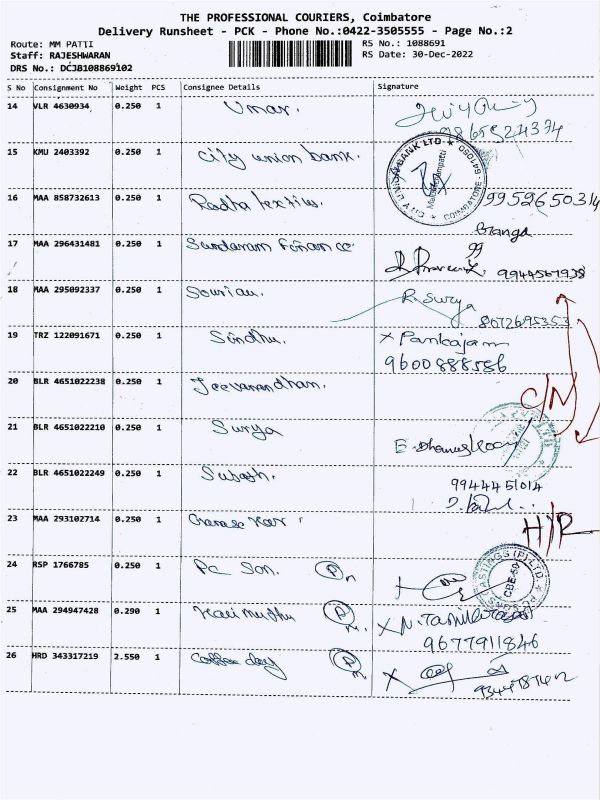 THE PROFESSIONAL COURIERS, Coimbatore
Delivery Runsheet - PCK - Phone No.:0422-3505555 - Page No.:2
Route: MM PATTI
RS No.: 1088691
Staff: RAJESHWARAN
RS Date: 30-Dec-2022
DRS No.: DCJB108869102
S No Consignment No Weight PCS Consignee Details Signature
14 VLR 4630934 0.250 1 Umar.
15 KMU 2403392 0.250 1 City union bank.
BANK LTD
641050
COIMBATORE
16 MAA 858732613 0.250 1 Radha 9952650314
17 MAA 296431481 0.250 1 Sundaram Finance Ganga
99
9944567938
18 MAA 295092337 0.250 1 R. Surya
8672695353
19 TRZ 122091671 0.250 1 Sindhu. X Pankajam
9600888586
20 BLR 4651022238 0.250 1 Jeevanandhan. C/N
21 BLR 4651022210 0.250 1 Surya
22 BLR 4651022249 0.250 1 Subash. 9944451014
23 MAA 293102714 0.250 1 H/R
24 RSP 1766785 0.250 1 Pc Son. P
CASTINGS (P) LTD
CBE-50
25 MAA 294947428 0.290 1 Harimuthu P
9677911846
26 HRD 343317219 2.550 1 Coffee day P